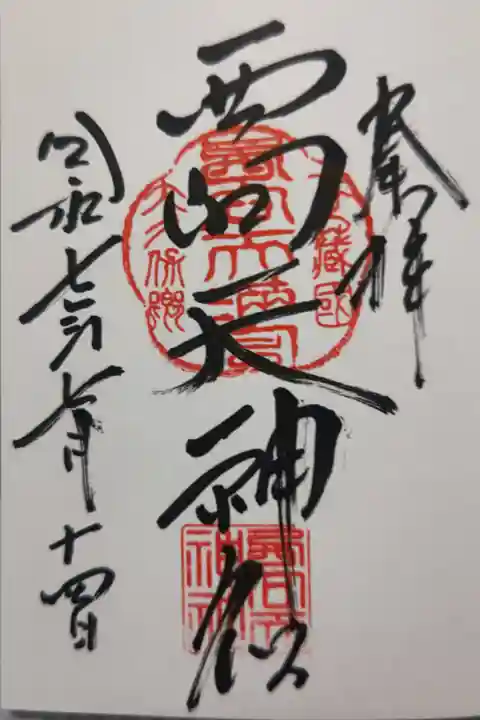 奉拝
西向天神社
令和七年七月十四日